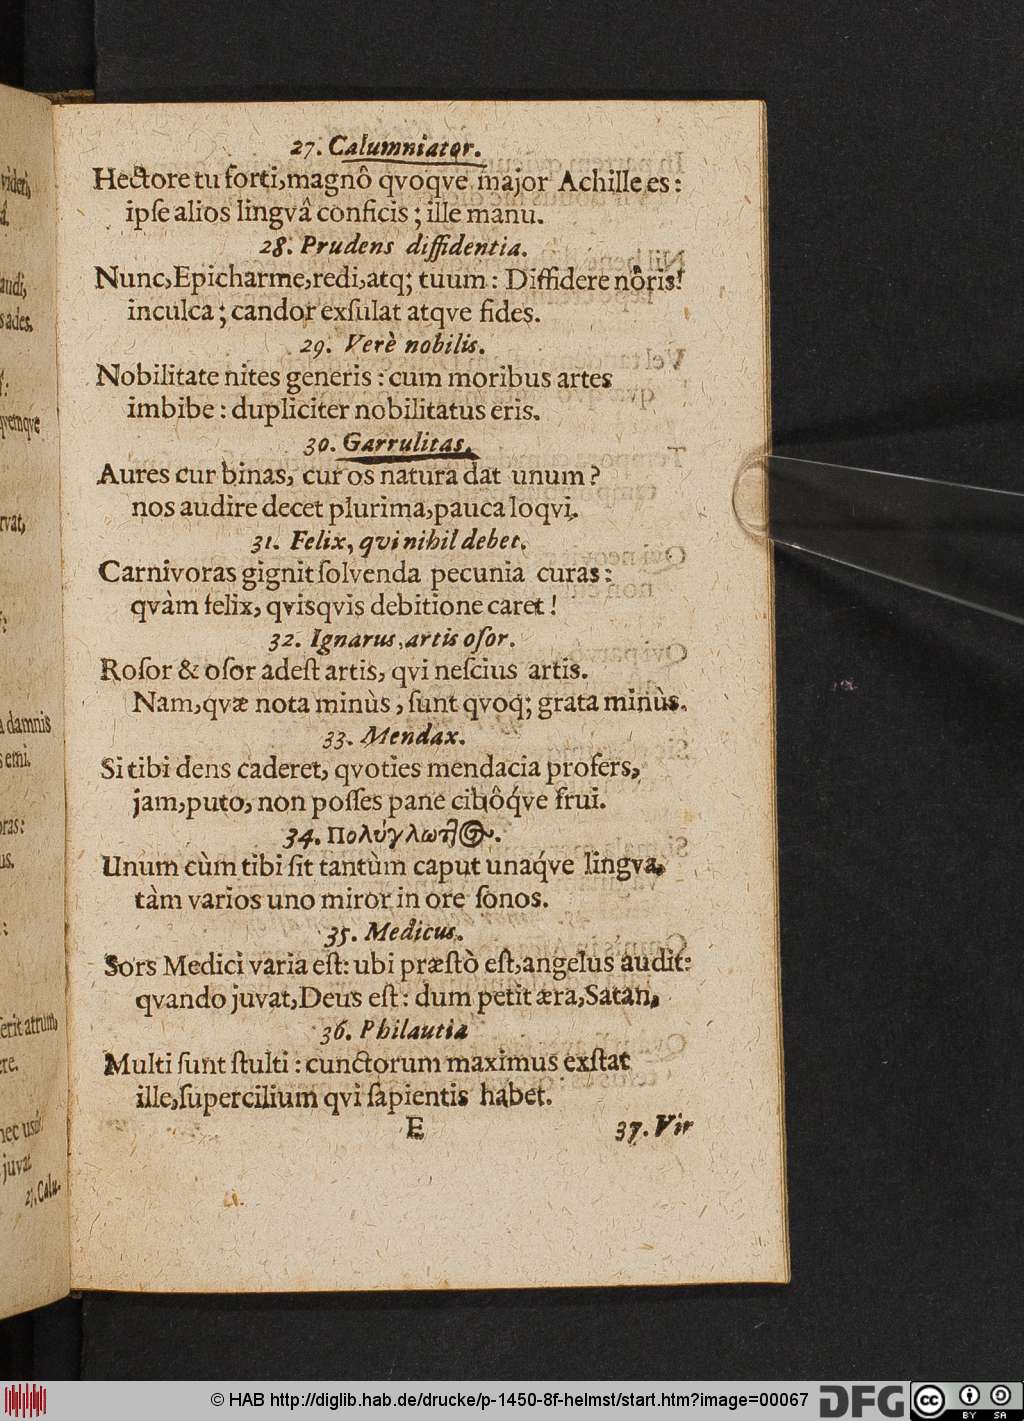 27. Calumniator.
Hectore tu forti, magnô qvoqve major Achille es:
ipſe alios lingvâ conficis; ille manu.
28. Prudens diffidentia.
Nunc, Epicharme, redi, atq; tuum: Diffidere nôris!
inculca; candor exſulat atqve fides.
29. Verè nobilis.
Nobilitate nites generis: cum moribus artes
imbibe: dupliciter nobilitatus eris.
30. Garrulitas.
Aures cur binas, cur os natura dat unum?
nos audire decet plurima, pauca loqvi.
31. Felix, qvi nihil debet.
Carnivoras gignit ſolvenda pecunia curas:
qvàm felix, qvisqvis debitione caret!
32. Ignarus, artis oſor.
Roſor & oſor adeſt artis, qvi neſcius artis.
Nam, qvæ nota minùs, ſunt qvoq; grata minùs.
33. Mendax.
Si tibi dens caderet, qvoties mendacia profers,
jam, puto, non poſſes pane cibôq́ve frui.
34. Πολύγλωτ]ος.
Unum cùm tibi ſit tantùm caput unaq́ve lingva,
tàm varios uno miror in ore ſonos.
35. Medicus.
Sors Medici varia eſt: ubi præſtò eſt, angelus audit:
qvando juvat, Deus eſt: dum petit æra, Satan.
36. Philautia
Multi ſunt ſtulti: cunctorum maximus exſtat
ille, ſupercilium qvi ſapientis habet.
E
37. Vir
videri,
audi,
s ades.
qvemqve
rvat,
a damnis
s emi.
oras:
us.
ferit atrum,
ere.
nec usûs
juvat
27. Calu-
© HAB http://diglib.hab.de/drucke/p-1450-8f-helmst/start.htm?image=00067
DFG
cc
BY SA